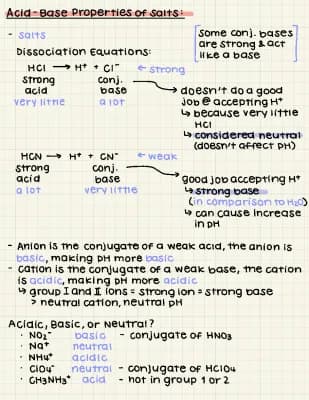 Acid-Base Properties of Salts:
- salts
[some conj. bases
are strong & act
like a base]
Dissociation Equations:
HCl → H⁺ + Cl⁻ ← strong
strong conj.
acid base
very little a lot
→ doesn't do a good
job @ accepting H⁺
↳ because very little
HCl
↳ considered neutral
(doesn't affect pH)
HCN → H⁺ + CN⁻ ← weak
strong conj.
acid base
a lot very little
→ good job accepting H⁺
↳ strong base
(in comparison to H₂O)
↳ can cause increase
in pH
- Anion is the conjugate of a weak acid, the anion is
basic, making pH more basic
- Cation is the conjugate of a weak base, the cation
is acidic, making pH more acidic
↳ group I and II ions = strong ion = strong base
> neutral cation, neutral pH
Acidic, Basic, or Neutral?
· NO₂⁻ basic - conjugate of HNO₃
· Na⁺ neutral
· NH₄⁺ acidic
· ClO₄⁻ neutral - conjugate of HClO₄
· CH₃NH₃⁺ acid - not in group 1 or 2